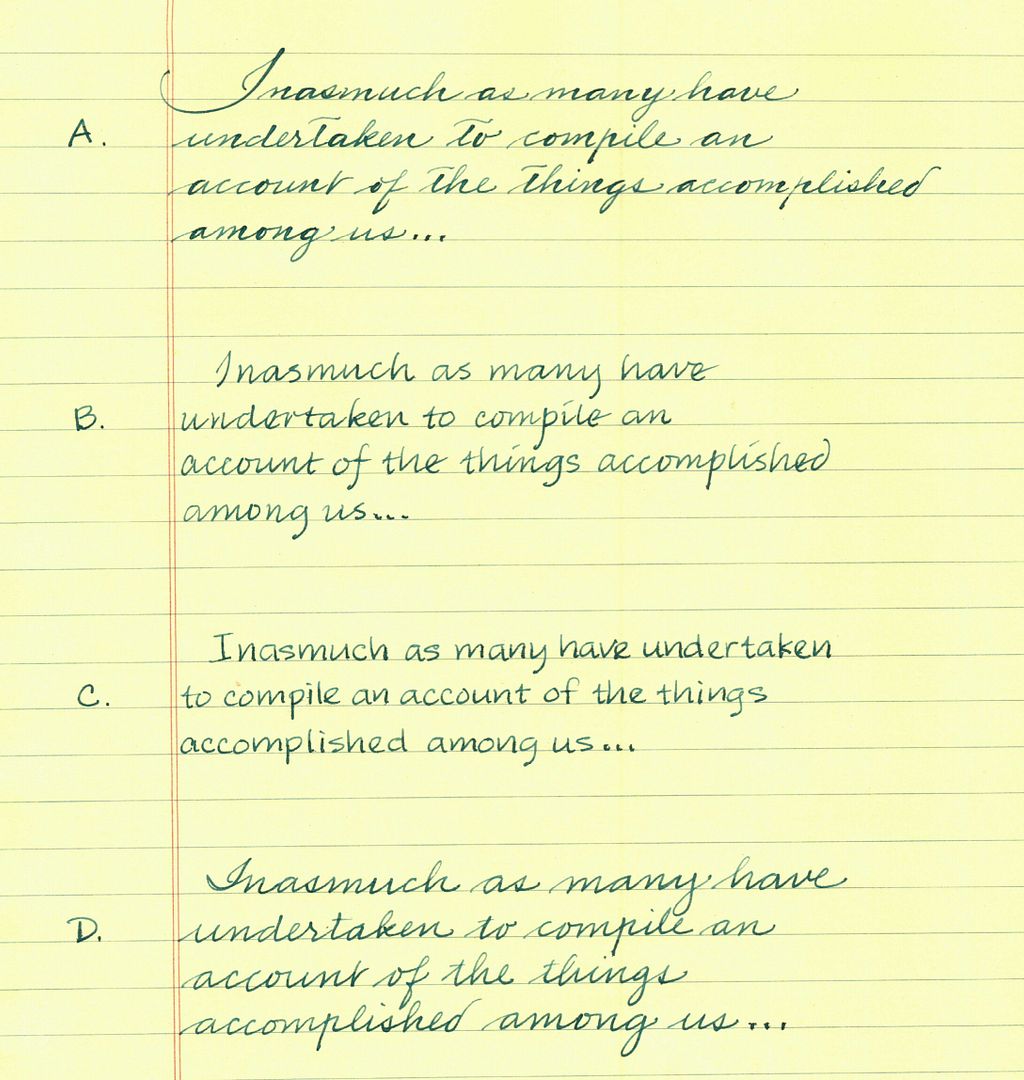 Inasmuch as many have
A. undertaken to compile an
account of the things accomplished
among us...
Inasmuch as many have
B. undertaken to compile an
account of the things accomplished
among us...
Inasmuch as many have undertaken
C. to compile an account of the things
accomplished among us...
Inasmuch as many have
D. undertaken to compile an
account of the things
accomplished among us...